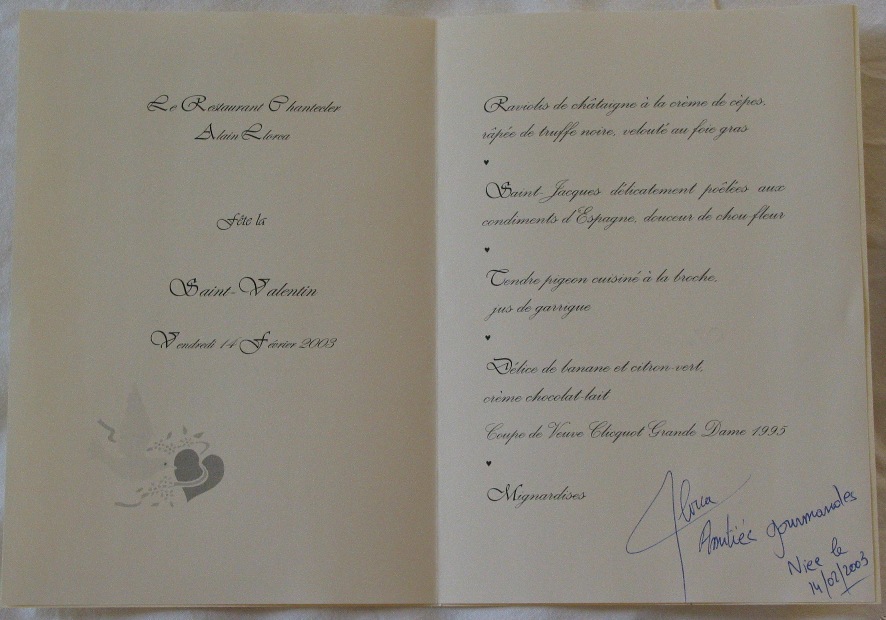 Le Restaurant Chantecler
Alain Llorca
Fête la
Saint-Valentin
Vendredi 14 Février 2003
Raviolis de châtaigne à la crème de cèpes,
râpée de truffe noire, velouté au foie gras
♥
Saint-Jacques délicatement poêlées aux
condiments d'Espagne, douceur de chou-fleur
♥
Tendre pigeon cuisiné à la broche,
jus de garrigue
♥
Délice de banane et citron-vert,
crème chocolat-lait
Coupe de Veuve Clicquot Grande Dame 1995
♥
Mignardises
Llorca
Amitiés gourmandes
Nice le
14/02/2003